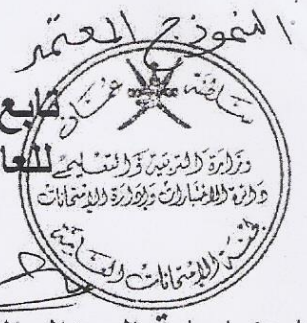 النموذج المعتمد
سلطنة عمان
تابع
للعا
وزارة التربية والتعليم
دائرة الامتحانات وإدارة الامتحانات
لجنة الامتحانات العامة